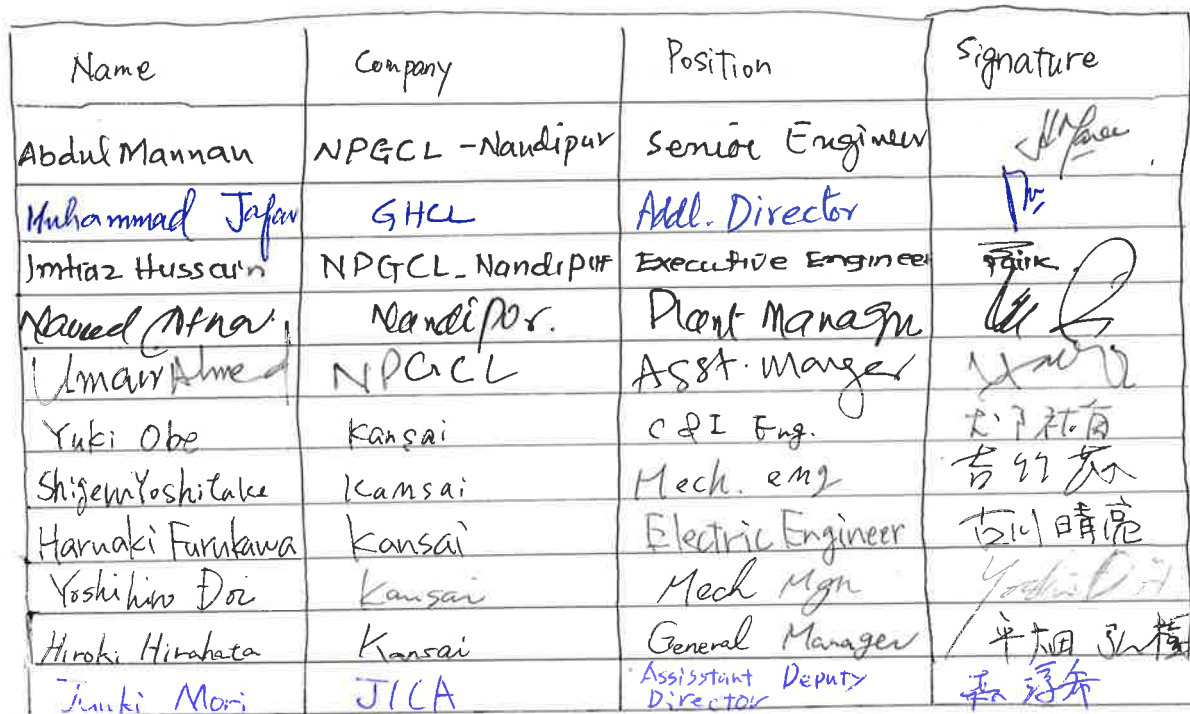 Name Company Position Signature
Abdul Mannan NPGCL - Nandipur Senior Engineer
Muhammad Jafar GHCL Addl. Director
Imtiaz Hussain NPGCL - Nandipur Executive Engineer
Naveed Nandipor. Plant Manager
Umair Ahmed NPGCL Asst. Manger
Yuki Obe Kansai C & I Eng.
Shigeru Yoshitake Kansai Mech. eng 吉竹
Haruaki Furukawa Kansai Electric Engineer 古川晴亮
Yoshihiro Doi Kansai Mech Mgr Yoshi Doi
Hiroki Hirahata Kansai General Manager 平畑 弘樹
Junki Mori JICA Assisstant Deputy
Director 森 淳希